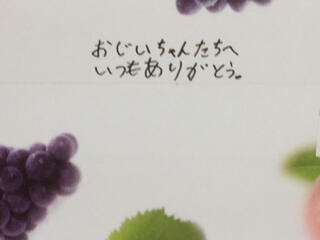 おじいちゃんたちへ
いつもありがとう。